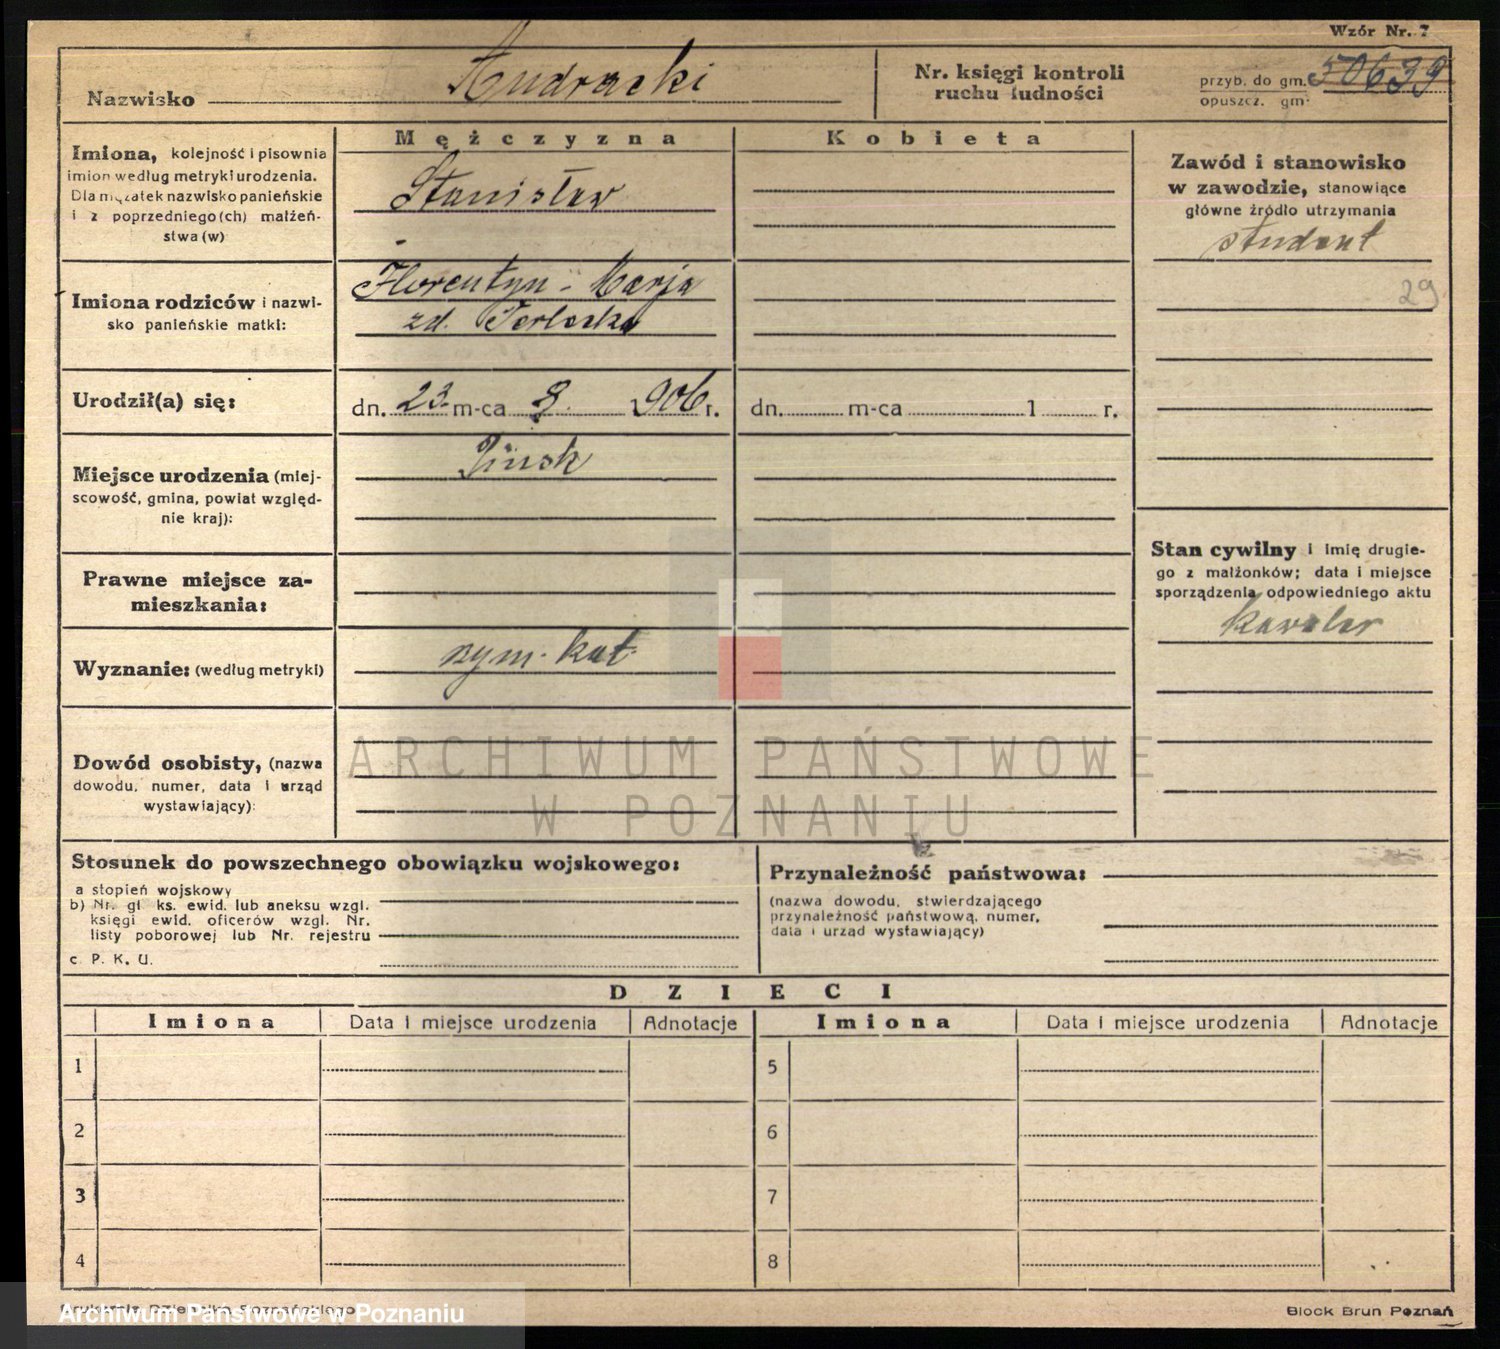 Wzór Nr. 7
Nazwisko Andracki
Nr. księgi kontroli
ruchu ludności
przyb. do gm. 50639
opuszcz. gm.
Mężczyzna
Kobieta
Imiona, kolejność i pisownia
imion według metryki urodzenia.
Dla mężatek nazwisko panieńskie
i z poprzedniego(ch) małżeń-
stwa(w)
Stanisław
Zawód i stanowisko
w zawodzie, stanowiące
główne źródło utrzymania
student
29
Imiona rodziców i nazwi-
sko panieńskie matki:
Florentyn - Marja
zd. Terlecka
Urodził(a) się:
dn. 23. m-ca 8. 1906 r.
dn. m-ca 1 r.
Miejsce urodzenia (miej-
scowość, gmina, powiat względ-
nie kraj):
Pińsk
Stan cywilny i imię drugie-
go z małżonków; data i miejsce
sporządzenia odpowiedniego aktu
kawaler
Prawne miejsce za-
mieszkania:
Wyznanie: (według metryki)
rzym. kat.
Dowód osobisty, (nazwa
dowodu, numer, data i urząd
wystawiający):
ARCHIWUM PAŃSTWOWE
W POZNANIU
Stosunek do powszechnego obowiązku wojskowego:
a stopień wojskowy
b) Nr. gł. ks. ewid. lub aneksu wzgl.
księgi ewid. oficerów wzgl. Nr.
listy poborowej lub Nr. rejestru
c P. K. U.
Przynależność państwowa:
(nazwa dowodu, stwierdzającego
przynależność państwową, numer,
data i urząd wystawiający)
DZIECI
Imiona Data i miejsce urodzenia Adnotacje Imiona Data i miejsce urodzenia Adnotacje
1 5
2 6
3 7
4 8
Archiwum Państwowe w Poznaniu
Block Brun Poznań